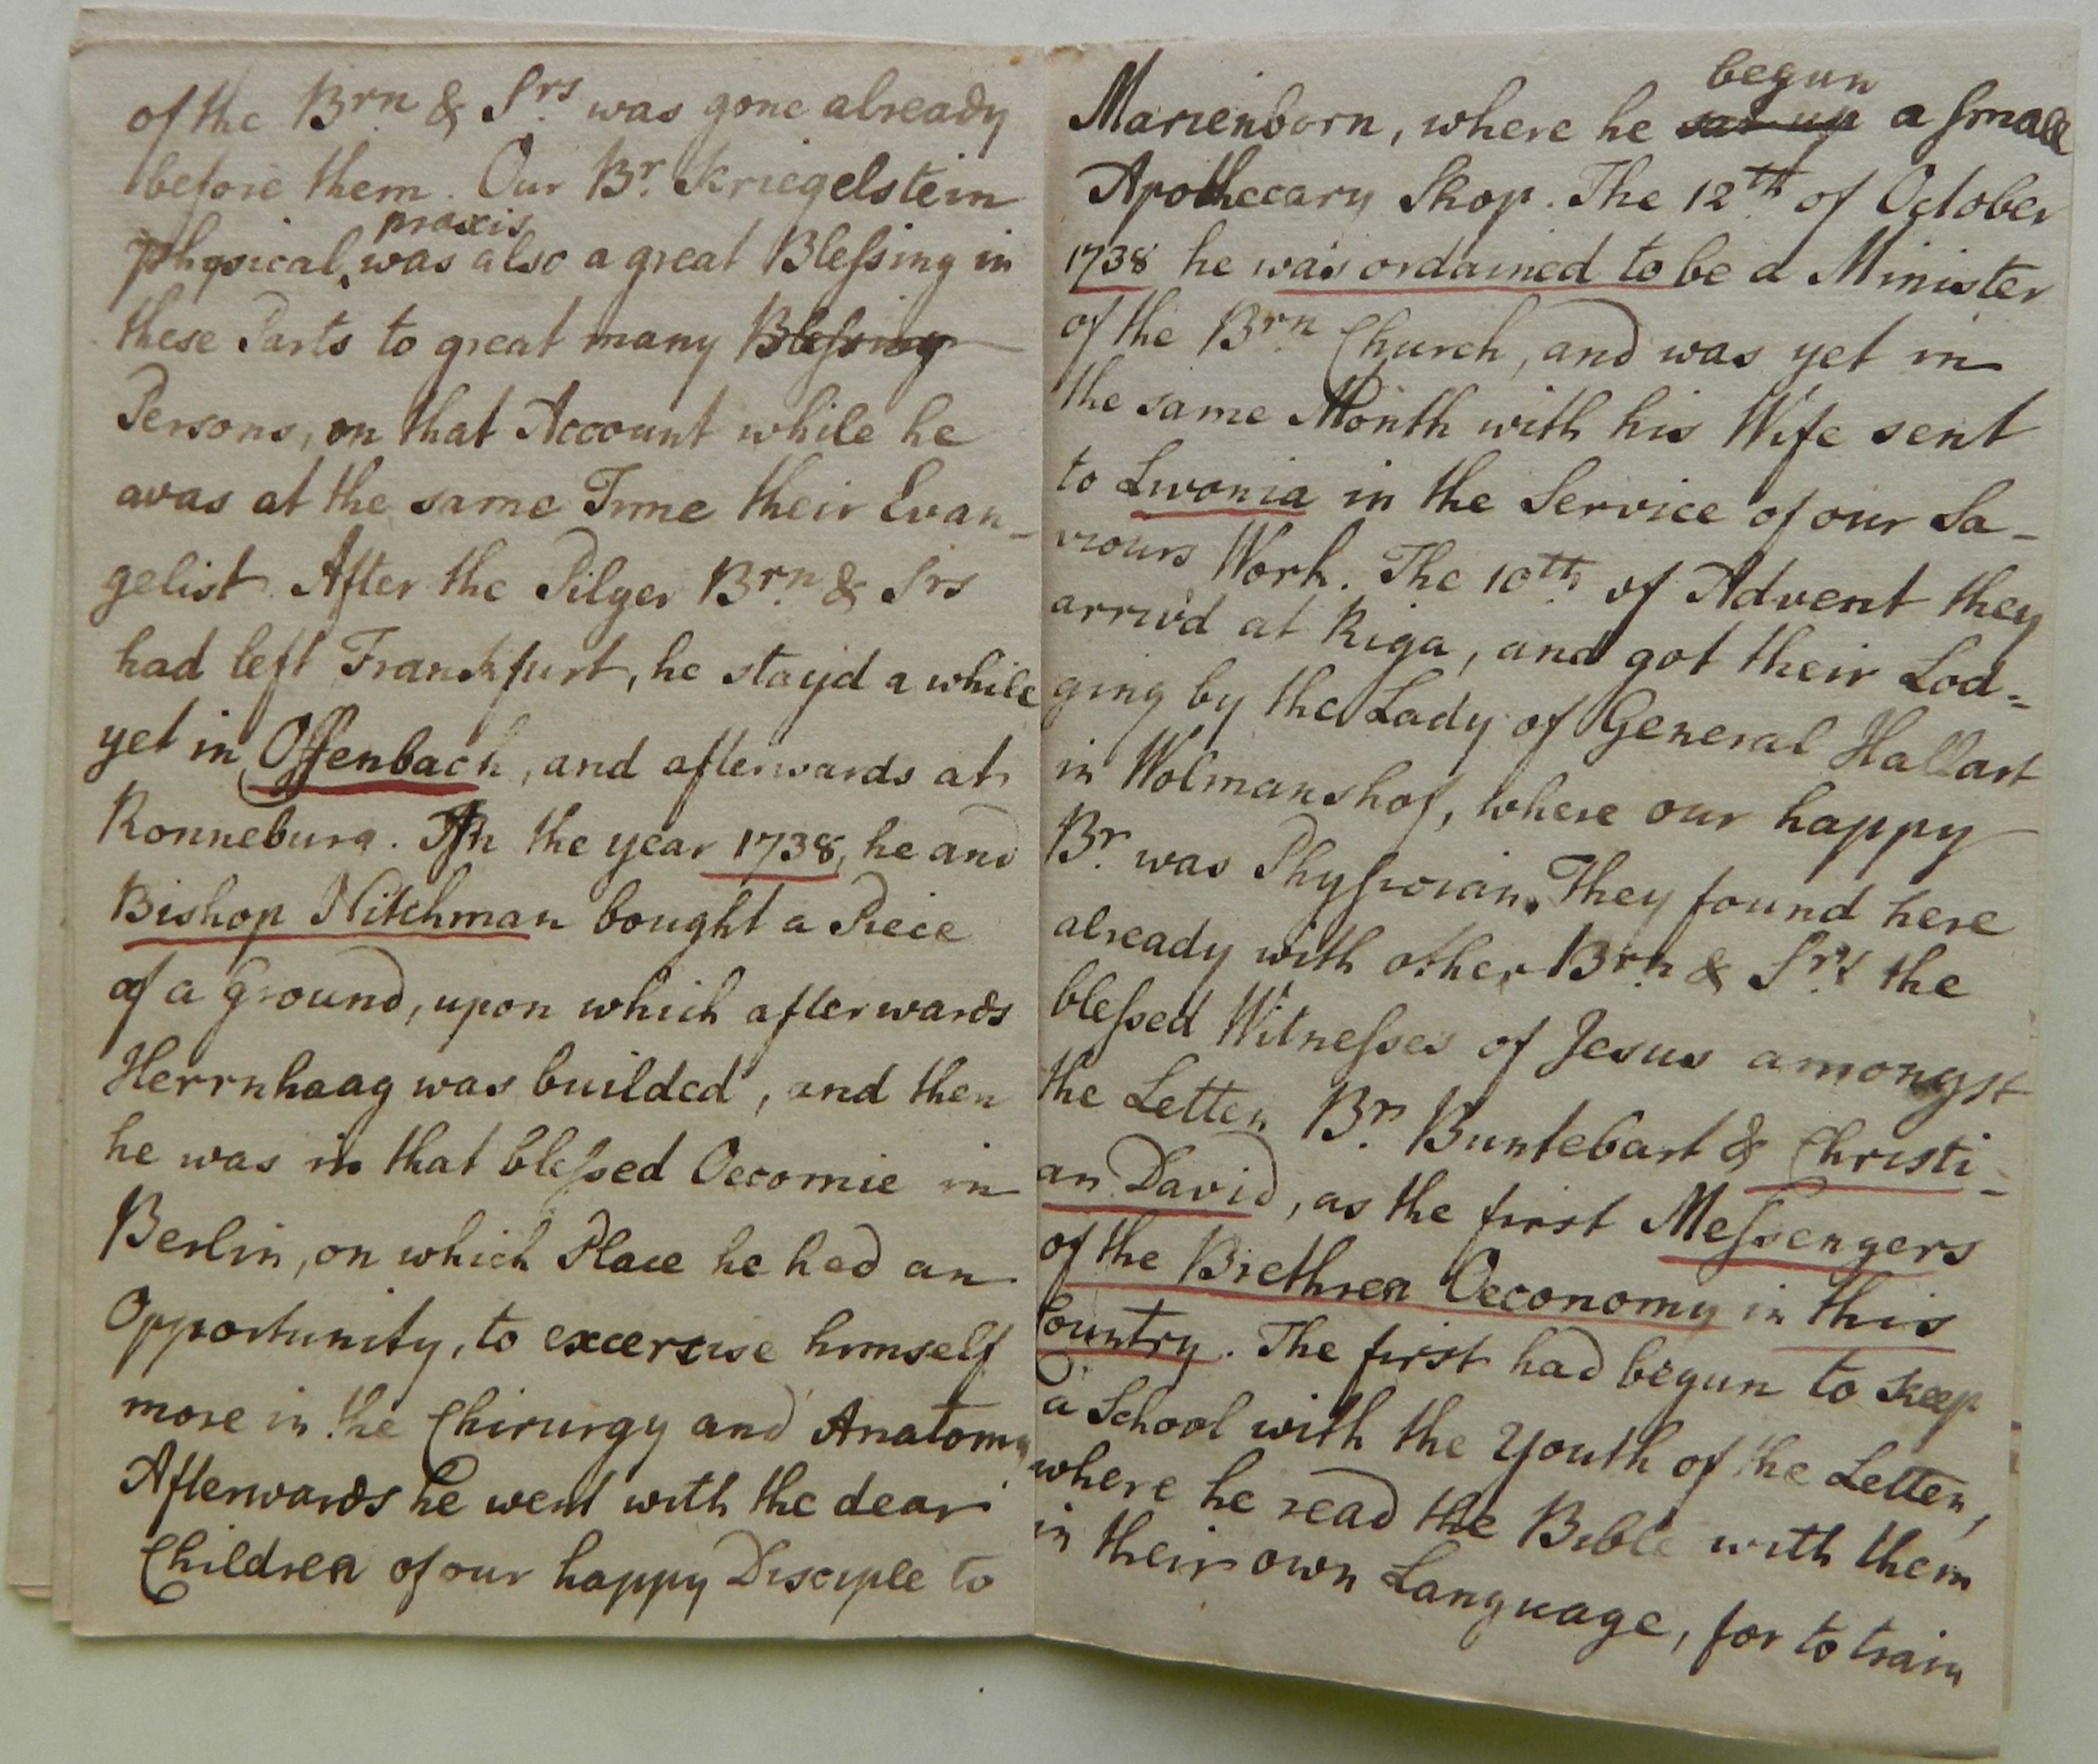 of the Brn & Srs was gone already
before them. Our Br. Kriegelstein
praxis
physical, was also a great Blessing in
these Parts to great many Blessing
Persons, on that Account while he
was at the same Time their Evan-
gelist. After the Pilger Brn & Srs
had left Frankfurt, he stayd a while
yet in Offenbach, and afterwards at
Ronneburg. In the year 1738, he and
Bishop Nitchman bought a Piece
of a Ground, upon which afterwards
Herrnhaag was builded, and then
he was in that blessed Oecomie in
Berlin, on which Place he had an
Opportunity, to excercise himself
more in the Chirurgy and Anatomy
Afterwards he went with the dear
Children of our happy Disciple to
begun
Marienborn, where he sat up a small
Apothecary Shop. The 12th of October
1738 he was ordained to be a Minister
of the Brn Church, and was yet in
the same Month with his Wife sent
to Livonia in the Service of our Sa-
viours Work. The 10th of Advent they
arriv'd at Riga, and got their Lod-
ging by the Lady of General Hallart
in Wolmanshof, where our happy
Br. was Physician. They found here
already with other Brn & Srs the
blessed Witnesses of Jesus amongst
the Letten Br. Buntebart & Christi-
an David, as the first Messengers
of the Brethren Oeconomy in this
Country. The first had begun to keep
a School with the Youth of the Letten,
where he read the Bible with them
in their own Language, for to train